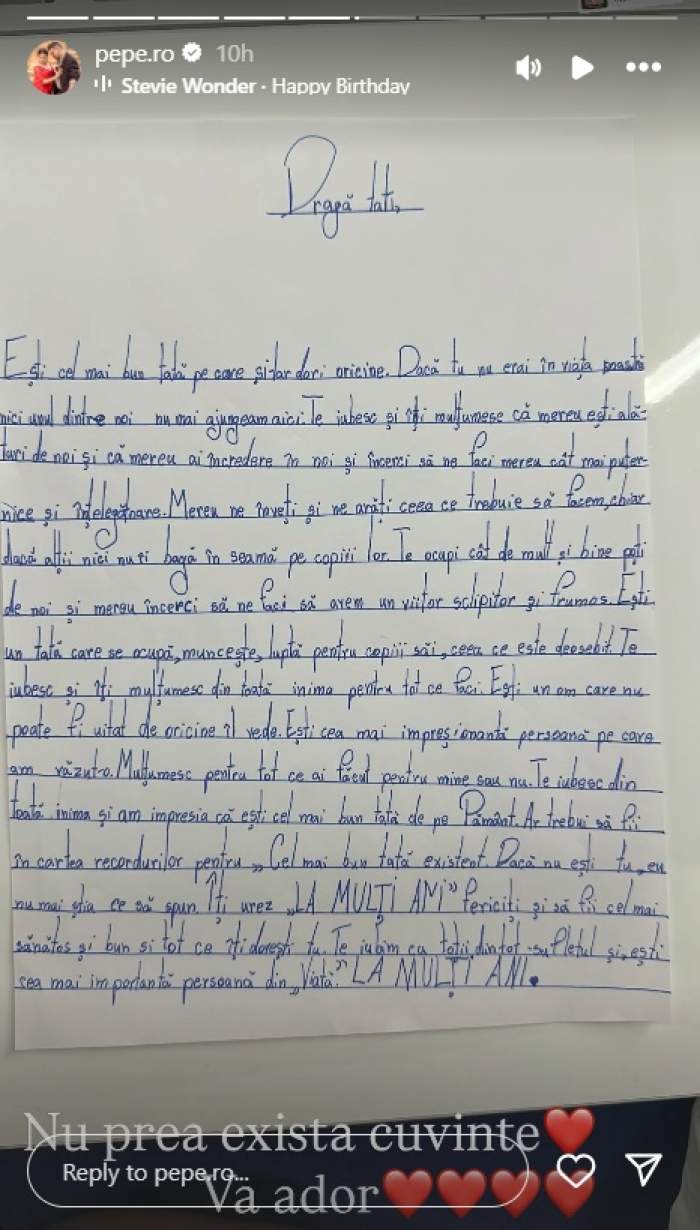 pepe.ro 10h
Stevie Wonder · Happy Birthday
Dragă tati,
Ești cel mai bun tată pe care și-l-ar dori oricine. Dacă tu nu erai în viața noastră
nici unul dintre noi nu mai ajungeam aici. Te iubesc și îți mulțumesc că mereu ești ală-
turi de noi și că mereu ai încredere în noi și încerci să ne faci mereu cât mai puter-
nice și înțelegătoare. Mereu ne înveți și ne arăți ceea ce trebuie să facem, chiar
dacă alții nici nu-ți bagă în seamă pe copiii lor. Te ocupi cât de mult și bine poți
de noi și mereu încerci să ne faci să avem un viitor sclipitor și frumos. Ești
un tată care se ocupă, muncește, luptă pentru copiii săi, ceea ce este deosebit. Te
iubesc și îți mulțumesc din toată inima pentru tot ce faci. Ești un om care nu
poate fi uitat de oricine îl vede. Ești cea mai impresionantă persoană pe care
am văzut-o. Mulțumesc pentru tot ce ai făcut pentru mine sau nu. Te iubesc din
toată inima și am impresia că ești cel mai bun tată de pe Pământ. Ar trebui să fii
în cartea recordurilor pentru „Cel mai bun tată existent. Dacă nu ești tu, eu
nu mai știa ce să spun. Îți urez „LA MULȚI ANI" Fericiți și să fii cel mai
sănătos și bun si tot ce îți dorești tu. Te iubim cu toții, din tot sufletul și, ești
cea mai importantă persoană din „Viată." LA MULȚI ANI.
Nu prea exista cuvinte❤️
Reply to pepe.ro...
Va ador❤️❤️❤️❤️